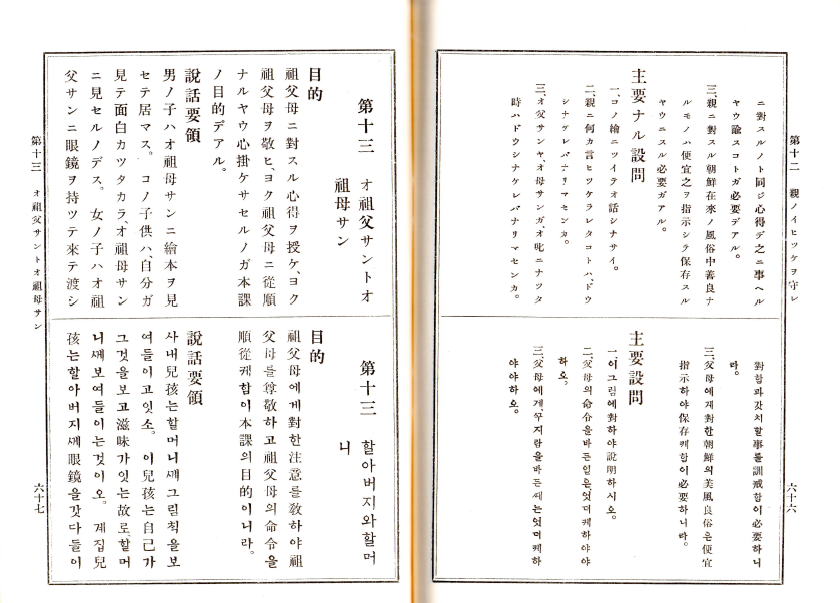 第十二　親ノイヒツケヲ守レ
六十六
ニ對スルノト同ジ心得デ之ニ事ヘル
ヤウ諭スコトガ必要デアル。
三、親ニ對スル朝鮮在來ノ風俗中善良ナ
ルモノハ便宜之ヲ指示シテ保存スル
ヤウニスル必要ガアル。
主要ナル設問
一、コノ繪ニツイテオ話シナサイ。
二、親ニ何カ言ヒツケラレタコトハ、ドウ
シナケレバナリマセンカ。
三、オ父サンヤ、オ母サンガ、オ叱ニナツタ
時ハドウシナケレバナリマセンカ。
對함과갓치할事를訓戒함이必要하니
라。
三、父母에게對한朝鮮의美風良俗은便宜
指示하야保存케함이必要하니라。
主要設問
一、이그림에對하야說明하시오。
二、父母의命令을바든일은、엇더케하야야
하오。
三、父母에게、꾸지람을바든때는엇더케하
야야하오。
第十三　オ祖父サントオ
祖母サン
目的
祖父母ニ對スル心得ヲ授ケ、ヨク
祖父母ヲ敬ヒ、ヨク祖父母ニ從順
ナルヤウ心掛ケサセルノガ本課
ノ目的デアル。
說話要領
男ノ子ハオ祖母サンニ繪本ヲ見
セテ居マス。コノ子供ハ、自分ガ
見テ面白カツタカラ、オ祖母サン
ニ見セルノデス。女ノ子ハオ祖
父サンニ眼鏡ヲ持ツテ來テ渡シ
第十三　할아버지와할머
니
目的
祖父母에게對한注意를敎하야祖
父母를尊敬하고祖父母의命令을
順從케함이本課의目的이니라。
說話要領
사내兒孩는할머니께그림책을보
여들이고잇소。이兒孩는自己가
그것을보고滋味가잇는故로、할머
니께보여들이는것이오。계집兒
孩는할아버지께眼鏡을갓다들이
第十三　オ祖父サントオ祖母サン
六十七